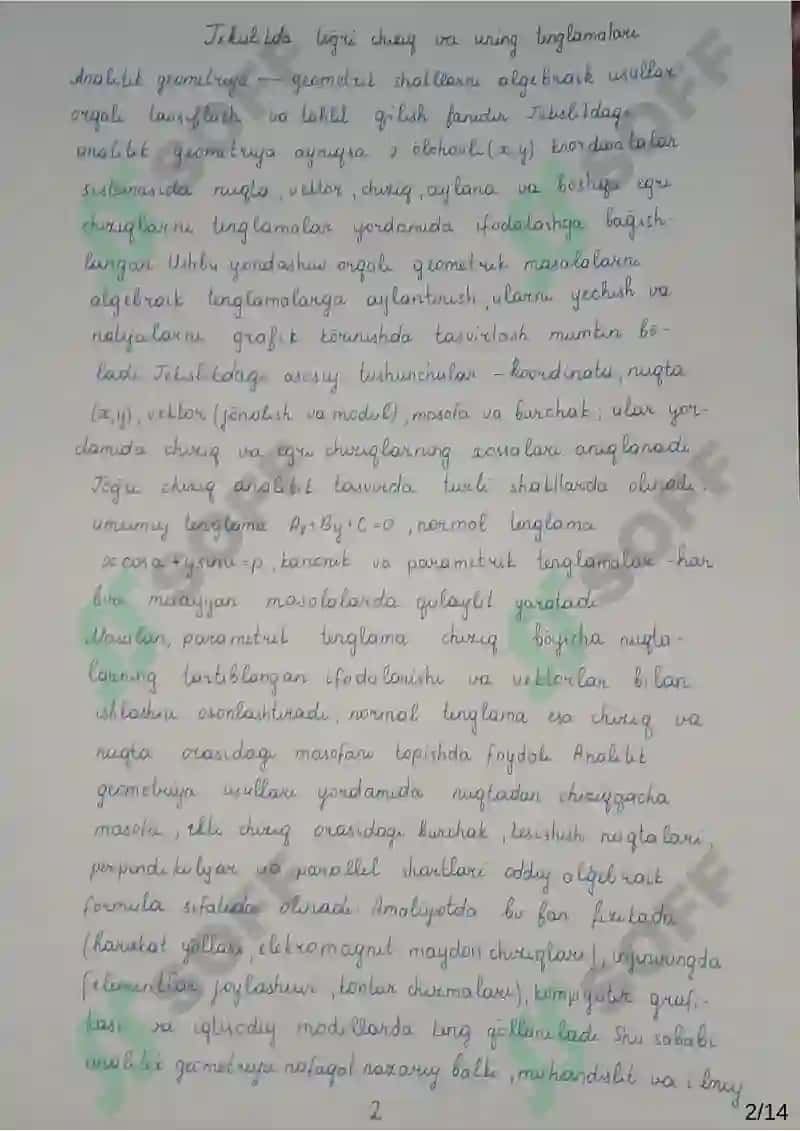 Tekislikda to'g'ri chiziq va uning tenglamalari
Analitik geometriya — geometrik shakllarni algebraik usullar
orqali tavsiflash va tahlil qilish fanidir Tekislikdagi
analitik geometriya ayniqsa 2 o'lchovli (x, y) koordinatalar
sistemasida nuqta, vektor, chiziq, aylana va boshqa egri
chiziqlarni tenglamalar yordamida ifodalashga bağish-
langan Ushbu yondashuv orqali geometrik masalalarni
algebraik tenglamalarga aylantirish, ularni yechish va
natijalarni grafik körinishda tasvirlash mumkin bö-
ladi Tekislikdagi asosiy tushunchalar – koordinata, nuqta
(x,y), vektor (jönalish va modul), masofa va burchak, ular yor-
damida chiziq va egri chiziqlarning xossalari aniqlanadi
Töğri chiziq analitik tasvirda turli shakllarda olinadi.
umumiy tenglama Ax+By+C=0, normal tenglama
x cosα+ysinα=p, kanonik va parametrik tenglamalar -har
biri muayyan masalalarda qulaylik yaratadi
Masalan, parametrik tenglama chiziq böyicha nuqta-
larning tartiblangan ifodalanishi va vektorlar bilan
ishlashni osonlashtiradi, normal tenglama esa chiziq va
nuqta orasidagi masofani topishda foydali Analitik
geometriya usullari yordamida nuqtadan chiziqqacha
masofa, ikki chiziq orasidagi burchak, kesishish nuqtalari,
perpendikulyar va parallel shartlari oddiy algebraik
formula sifatida olinadi Amaliyotda bu fan fizikada
(harakat yöllari, elektromagnit maydon chiziqlari), injiniringda
(elementlar joylashuvi, kontur chizmalari), kompyuter grafi-
kasi va iqtisodiy modellarda keng qöllaniladi Shu sababli
analitik geometriya nafaqat nazariy balki, muhandislik va ilmiy
2
2/14
SOFF
SOFF
SOFF
SOFF
SOFF
SOFF